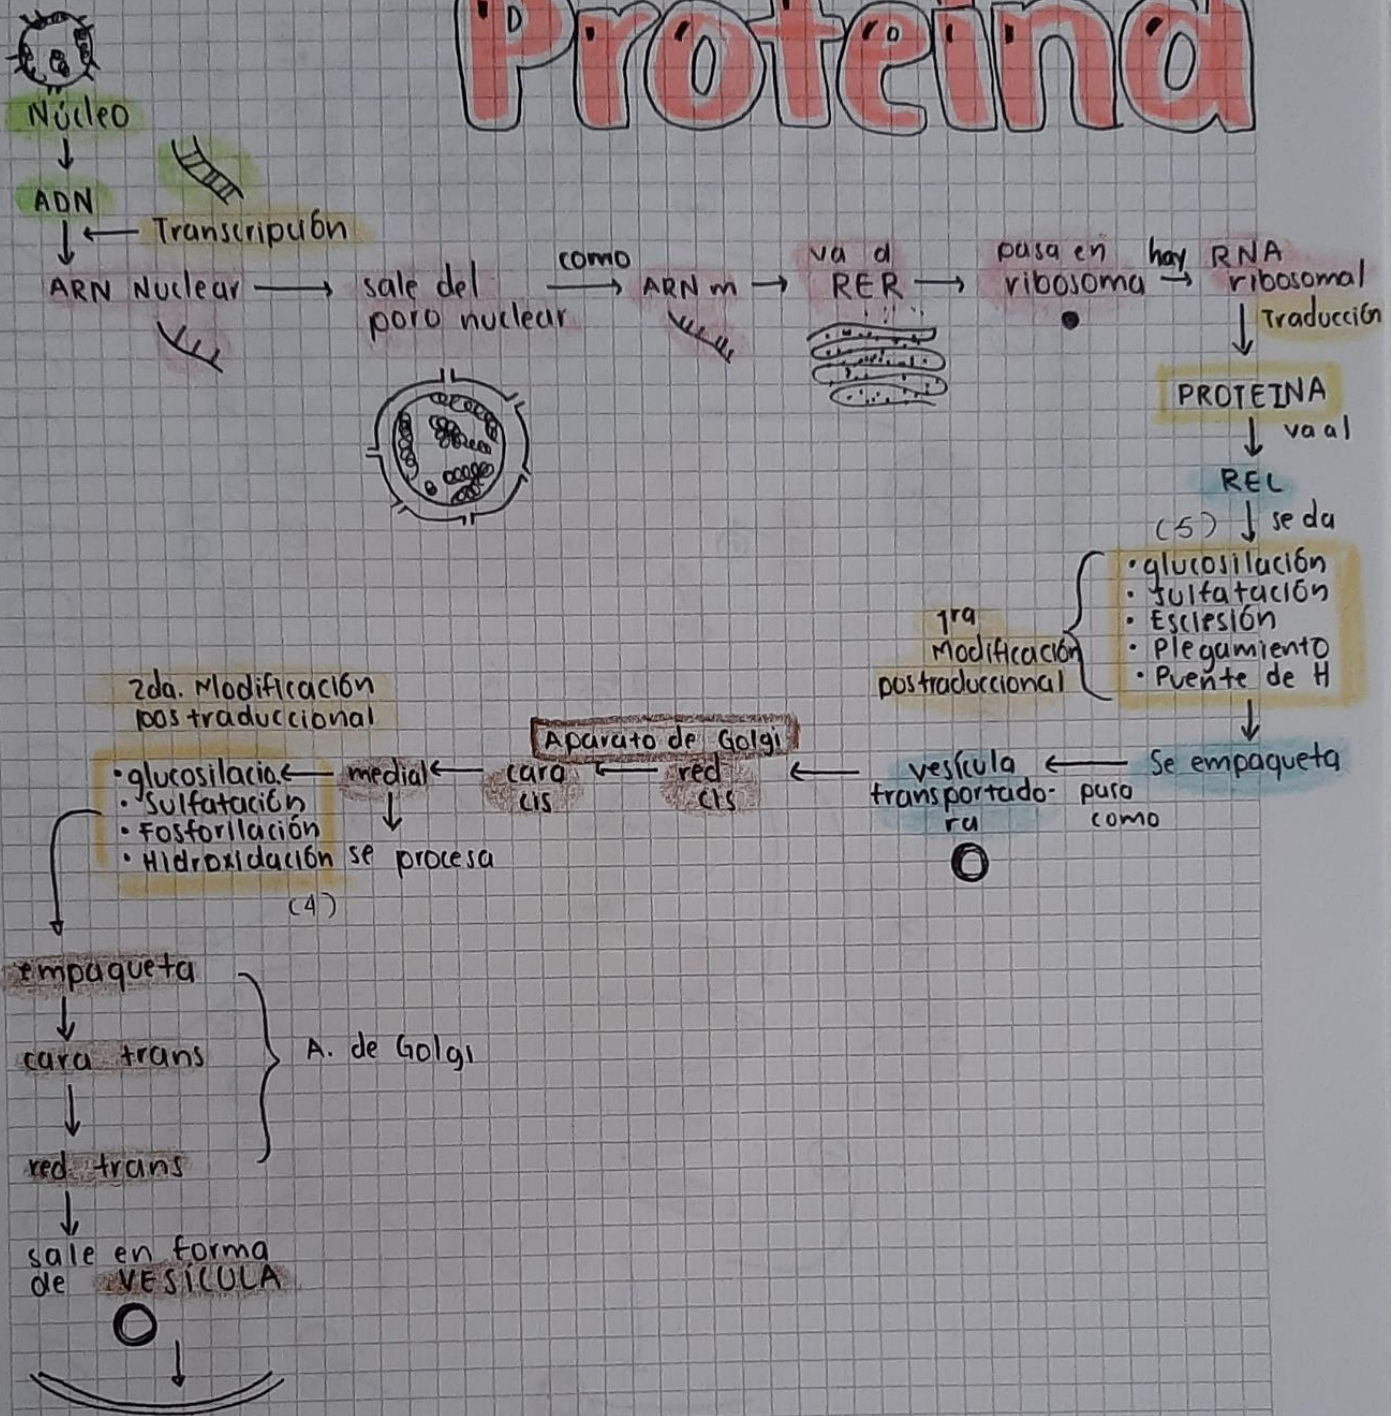 Proteína
Núcleo
ADN
Transcripción
ARN Nuclear
sale del
poro nuclear
como
ARN m
va a
RER
pasa en
ribosoma
hay
RNA
ribosomal
Traducción
PROTEINA
va al
REL
(5)
se da
• glucosilación
• sulfatación
• Esciesión
• Plegamiento
• Puente de H
1ra
Modificación
postraduccional
Se empaqueta
para
como
vesícula
transportado-
ra
Aparato de Golgi
red
cis
cara
cis
medial
se procesa
2da. Modificación
postraduccional
• glucosilacio
• Sulfatación
• Fosforilación
• Hidroxidación
(4)
empaqueta
cara trans
red trans
A. de Golgi
sale en forma
de VESÍCULA